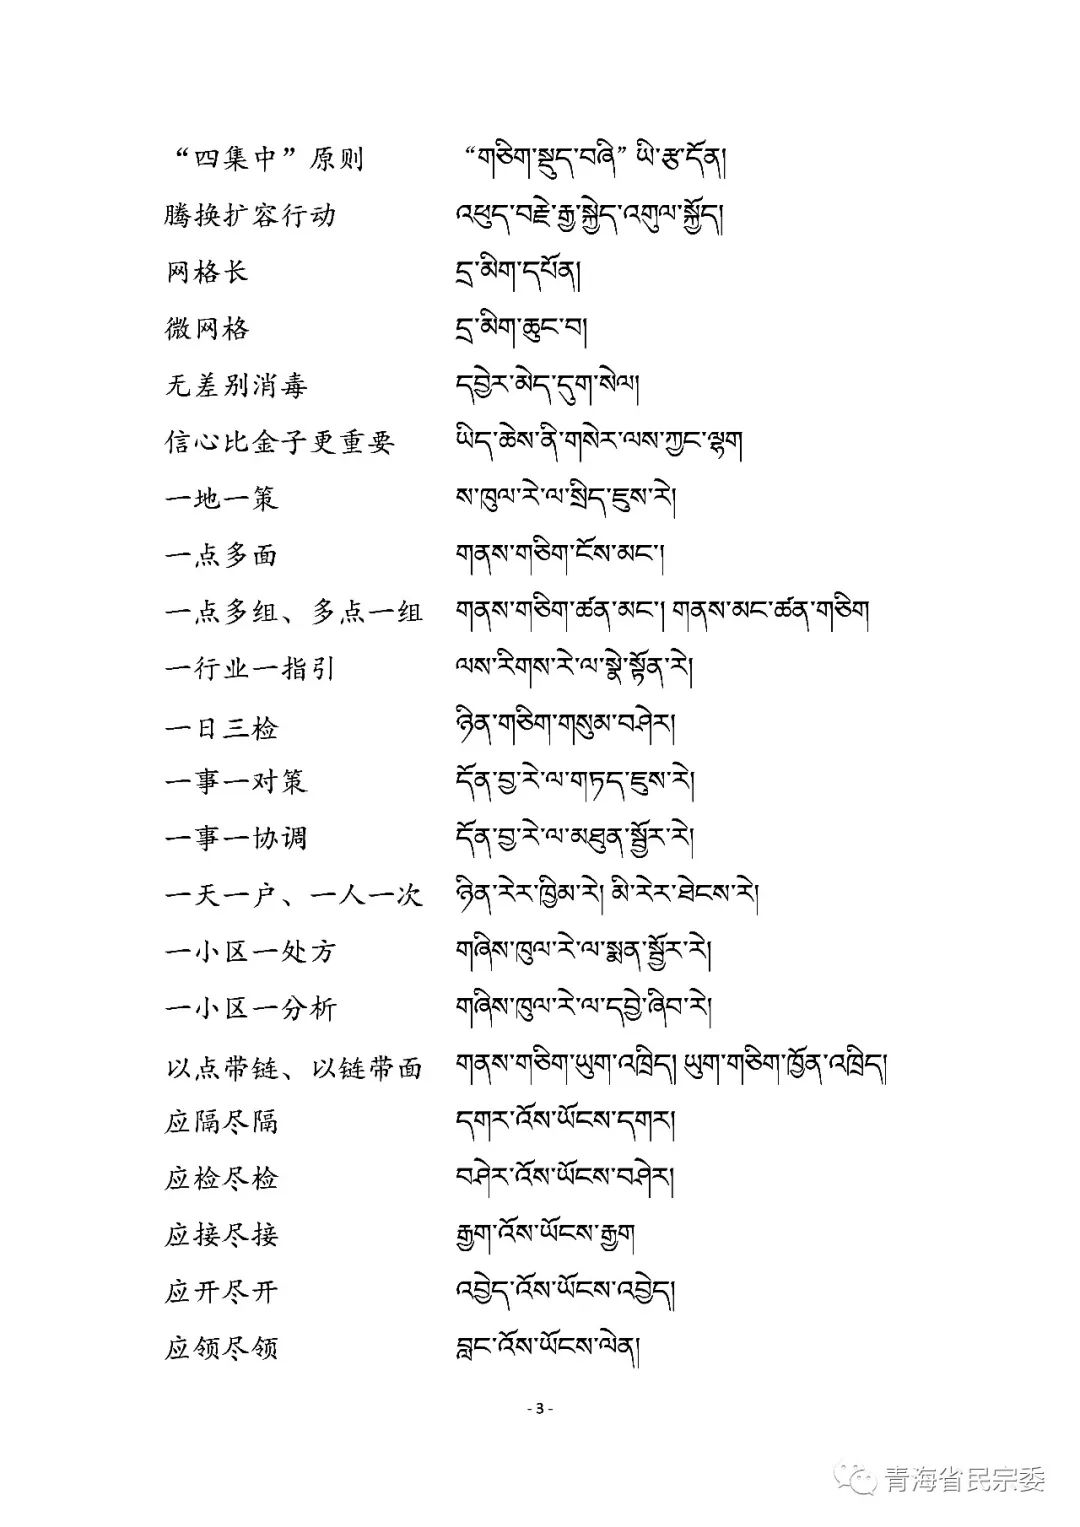 “四集中”原则 “གཅིག་སྡུད་བཞི” ཡི་རྩ་དོན།
腾换扩容行动 འཕུད་བརྗེ་རྒྱ་སྐྱེད་འགུལ་སྐྱོད།
网格长 དྲ་མིག་དཔོན།
微网格 དྲ་མིག་ཆུང་བ།
无差别消毒 དབྱེར་མེད་དུག་སེལ།
信心比金子更重要 ཡིད་ཆེས་ནི་གསེར་ལས་ཀྱང་ལྷག
一地一策 ས་ཁུལ་རེ་ལ་སྲིད་ཇུས་རེ།
一点多面 གནས་གཅིག་ངོས་མང་།
一点多组、多点一组 གནས་གཅིག་ཚན་མང་། གནས་མང་ཚན་གཅིག
一行业一指引 ལས་རིགས་རེ་ལ་སྣེ་སྟོན་རེ།
一日三检 ཉིན་གཅིག་གསུམ་བཤེར།
一事一对策 དོན་བྱ་རེ་ལ་གཏད་ཇུས་རེ།
一事一协调 དོན་བྱ་རེ་ལ་མཐུན་སྦྱོར་རེ།
一天一户、一人一次 ཉིན་རེར་ཁྱིམ་རེ། མི་རེར་ཐེངས་རེ།
一小区一处方 གཞིས་ཁུལ་རེ་ལ་སྨན་སྦྱོར་རེ།
一小区一分析 གཞིས་ཁུལ་རེ་ལ་དབྱེ་ཞིབ་རེ།
以点带链、以链带面 གནས་གཅིག་ཡུག་འཁྲིད། ཡུག་གཅིག་ཁྱོན་འཁྲིད།
应隔尽隔 དགར་འོས་ཡོངས་དགར།
应检尽检 བཤེར་འོས་ཡོངས་བཤེར།
应接尽接 རྒྱག་འོས་ཡོངས་རྒྱག
应开尽开 འབྱེད་འོས་ཡོངས་འབྱེད།
应领尽领 བླང་འོས་ཡོངས་ལེན།
- 3 -
青海省民宗委